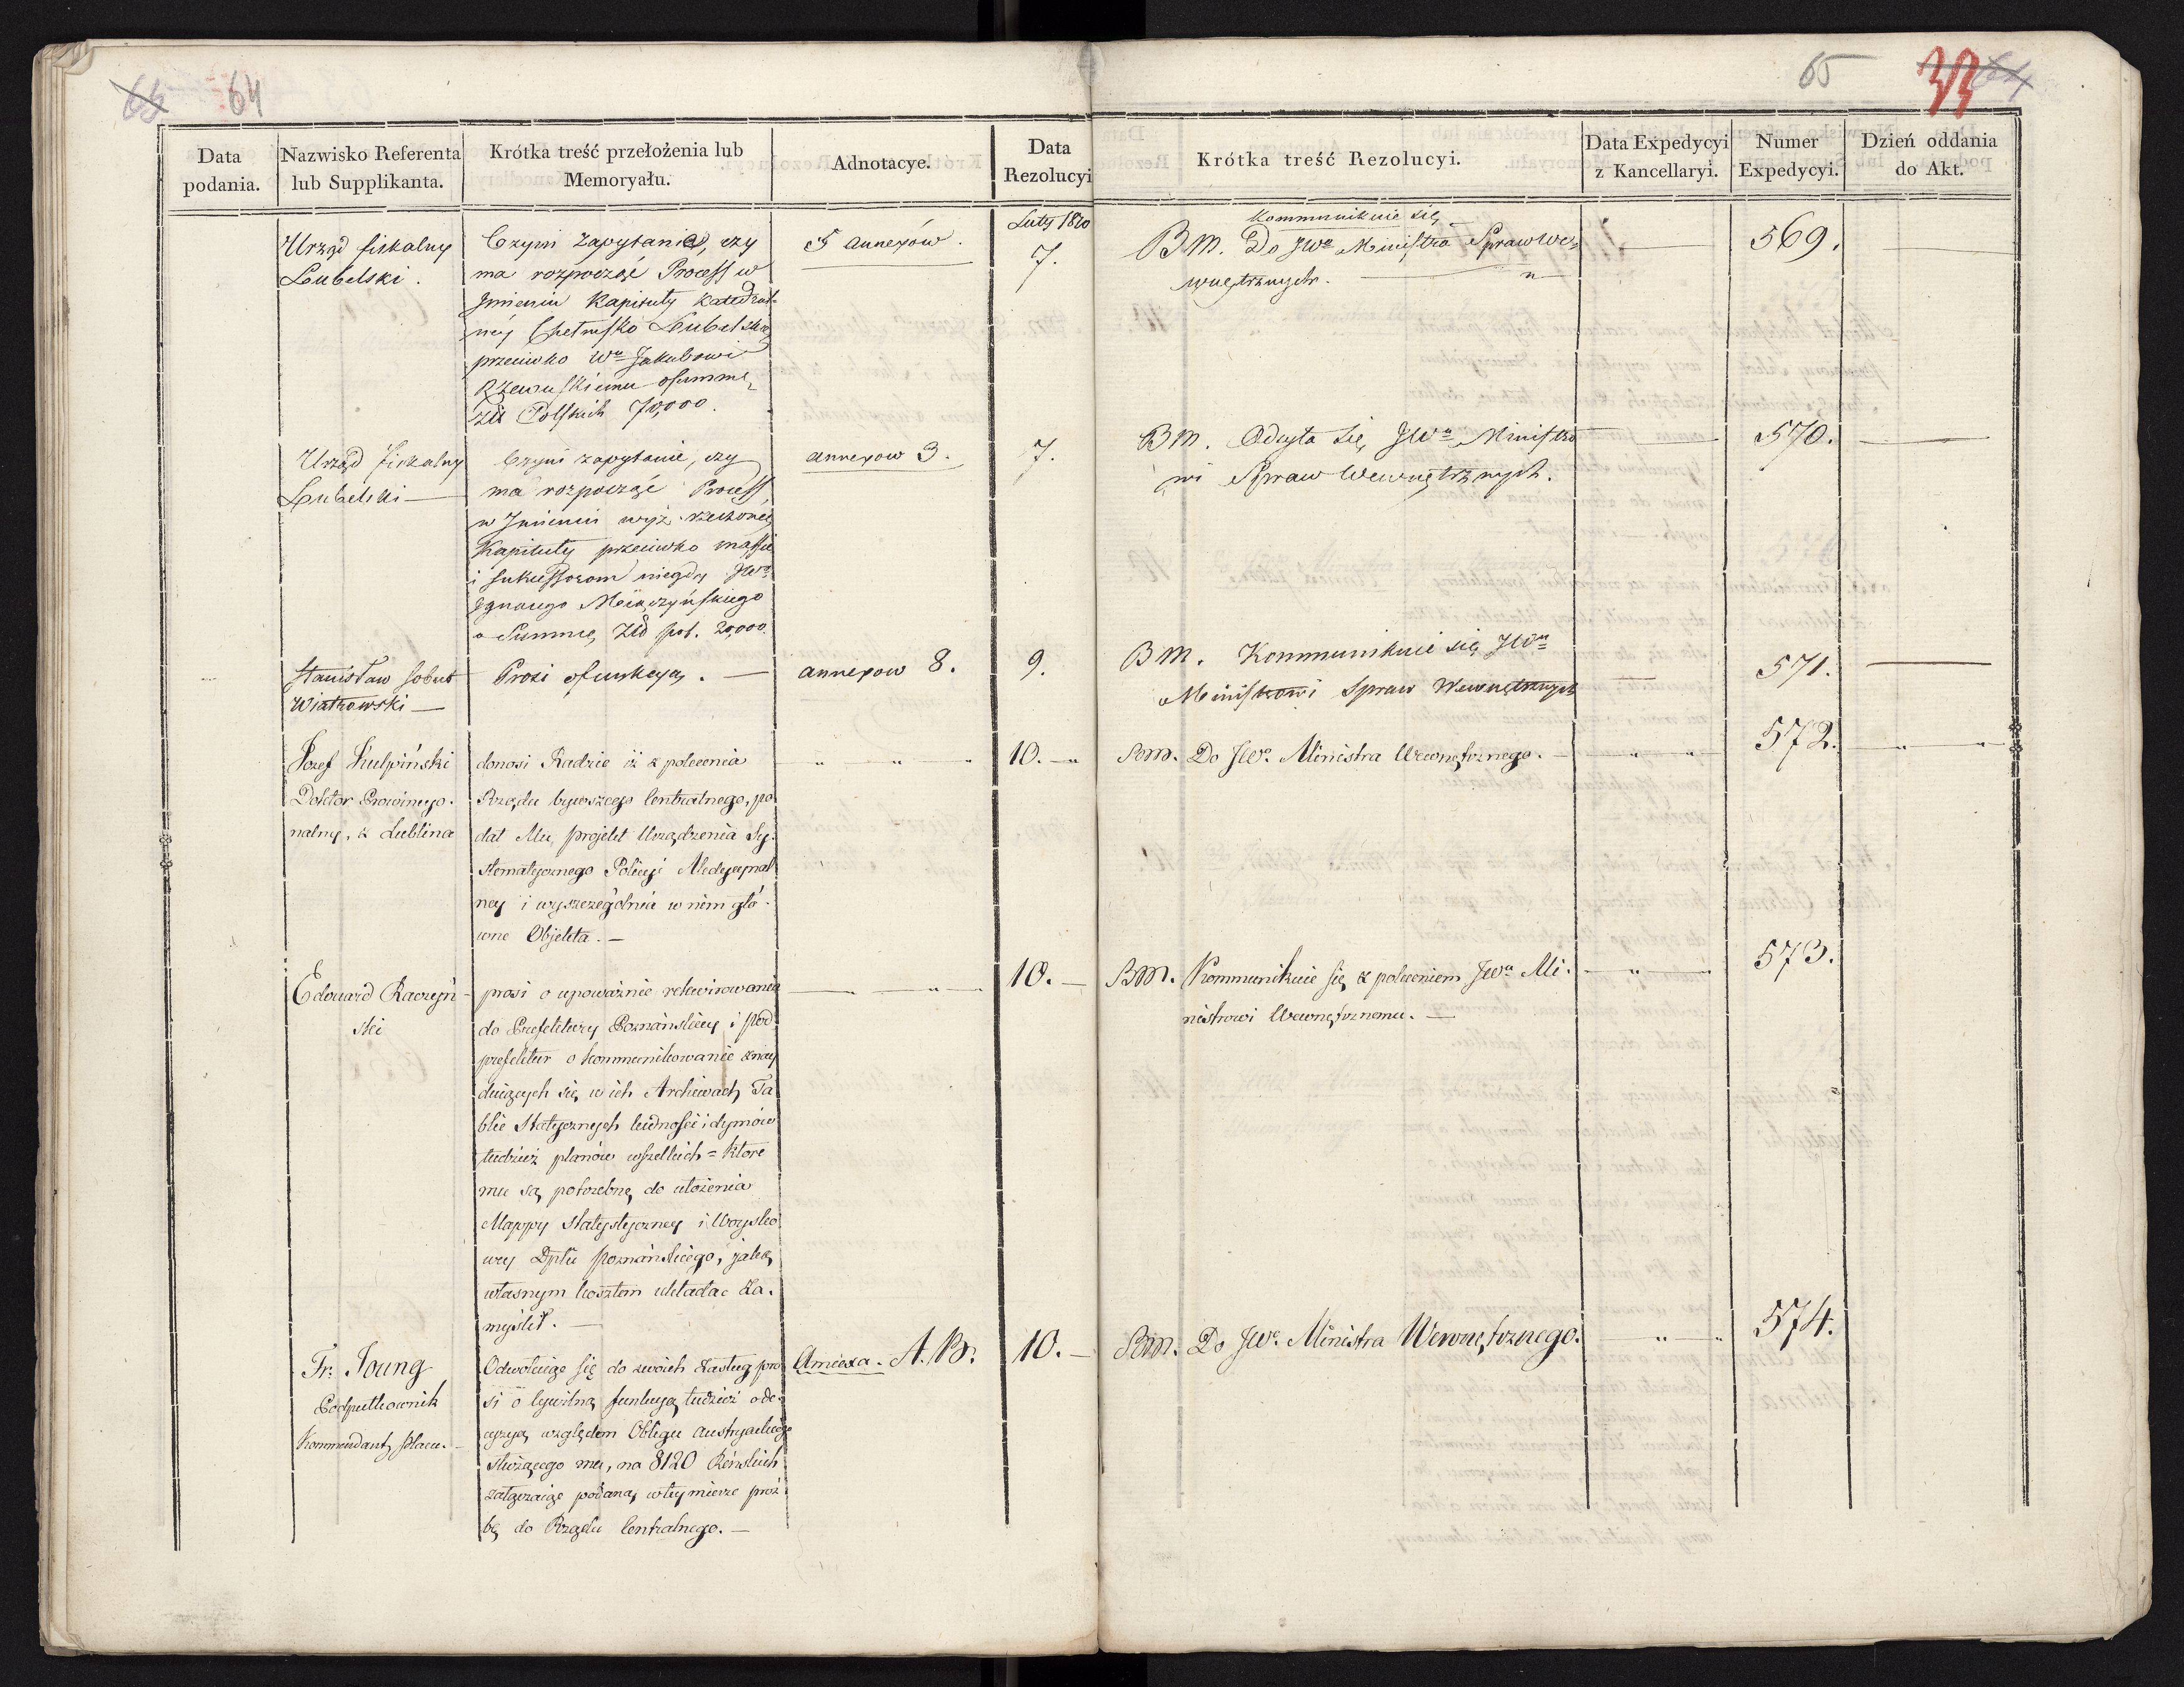 63 64
65 33 64
Data podania.
Nazwisko Referenta lub Supplikanta.
Krótka treść przełożenia lub Memoryału.
Adnotacye.
Data Rezolucyi
Krótka treść Rezolucyi.
Data Expedycyi z Kancellaryi.
Numer Expedycyi.
Dzień oddania do Akt.
Luty 1810
Urząd fiskalny
Lubelski.
Czyni zapytanie, czy
ma rozpocząć Process w
Imieniu Kapituły Katedral-
néy Chełmsko Lubelskiey
przeciwko Wu Jakubowi
Rzewuskiemu o summę
Złł Polskich 70,000.
5 annexów.
7.
Kommunikuie się
BM. Do JWo Ministra Spraw We-
wnętrznych. — "
569.
Urząd fiskalny
Lubelski —
Czyni zapytanie, czy
ma rozpocząć Process
w Imieniu wyż rzeczoney
Kapituły przeciwko massie
i sukcessorom niegdy JWo
Ignacego Miączyńskiego
o Summę Złł pol. 20,000.
annexow 3.
7.
BM. Odsyła się JWu Ministro
wi Spraw Wewnętrznych.
570.
Stanisław
Wiatrowski —
Prosi o funkcyą. —
annexow 8.
9.
BM. Kommunikuie się JWu
Ministrowi Spraw Wewnętrznych
571.
Jozef Kulpiński
Doktor Prowincyo-
nalny, z Lublina
donosi Radzie iż z polecenia
Rządu bywszego Centralnego, po
dał Mu, projekt Urządzenia Sy-
stematycznego Policyi Medycynal
ney i wyszczególnia w nim głó-
wne Objekta. —
" " "
10. — "
BM. Do JWo. Ministra Wewnętrznego. —
" "
572.
" "
Edouard Raczyń-
ski
prosi o upoważnie rekwirowania
do Prefektury Poznańskiey i Pod
prefektur o kommunikowanie znay
duiących się w ich Archiwach Ta
blic Statycznych ludności i dymów
tudzież planów wszelkich = które
mu są potrzebne do ułożenia
Mappy Statystyczney i Woysko
wey Dptu poznańskiego, jaką
własnym kosztem układać za-
myślił. —
— " —
10. —
BM. Kommunikuie się z poleceniem JWu Mi-
nistrowi Wewnętrznemu. —
— " —
573.
Fr: Joung
Podpułkownik
Kommendant placu. —
Odwołuiąc się do swoich zasług pro
si o Cywilną funkcyą tudzież o de-
cyzyą względem Obligu austryackiego
służącego mu, na 8120 Reńskich
załączaiąc podaną w tey mierze proź
bę do Rządu Centralnego. —
Annexa. A. B.
10. —
BM. Do JWo. Ministra Wewnętrznego.
— " "
574.